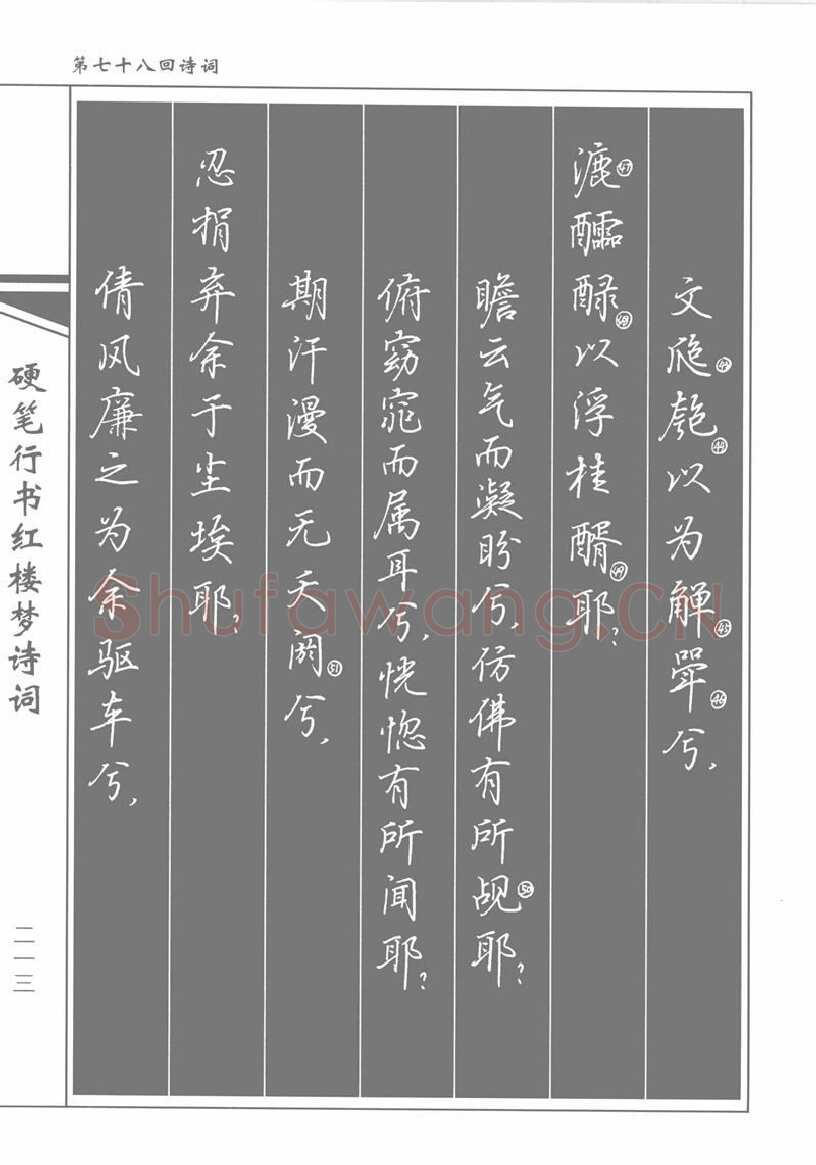 第七十八回诗词
文瓟㊸匏㊹以为觯㊺斝㊻兮，
漉㊼醽醁㊽以浮桂醑㊾耶？
瞻云气而凝盼兮，仿佛有所觇㊿耶？
俯窈窕而属耳兮，恍惚有所闻耶？
期汗漫而无夭阏51兮，
忍捐弃余于尘埃耶？
倩风廉之为余驱车兮，
硬笔行书红楼梦诗词
二一三
Shufawang.CN